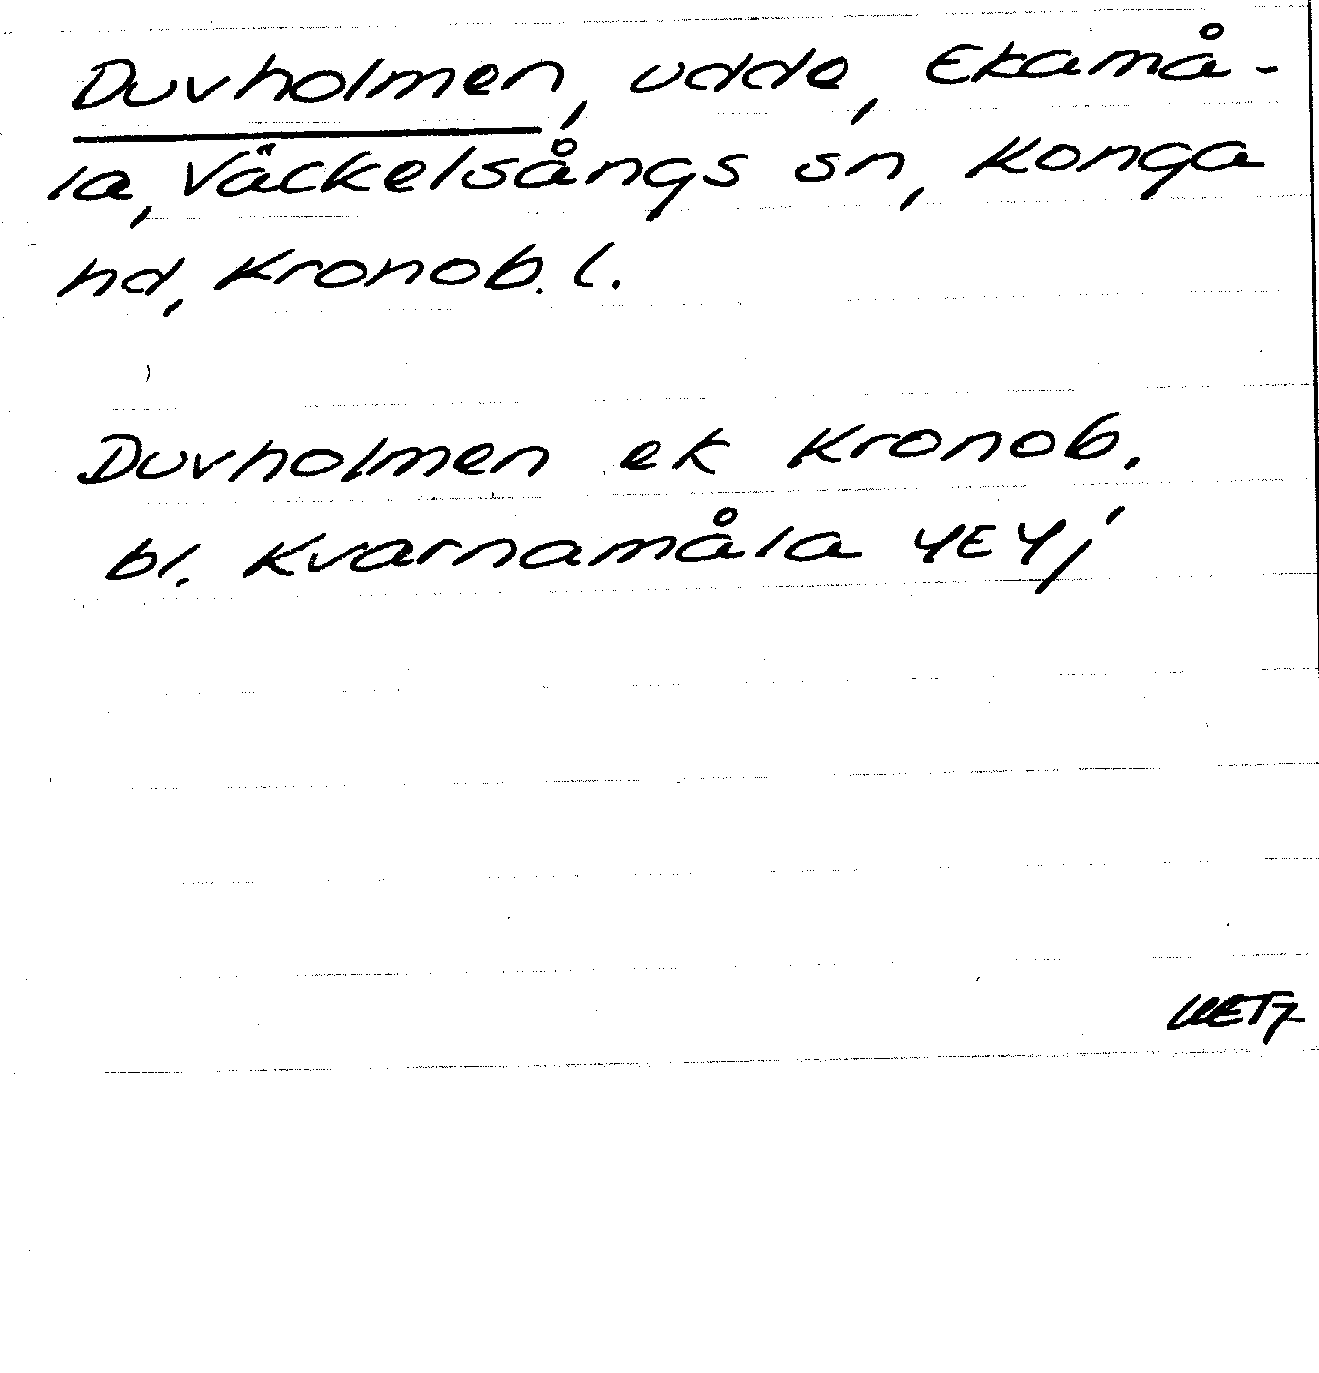 Duvholmen, udde, Ekamå-
la, Väckelsångs sn, Konga
hd, Kronob. l.
Duvholmen ek Kronob.
bl. Kvarnamåla 4E4j